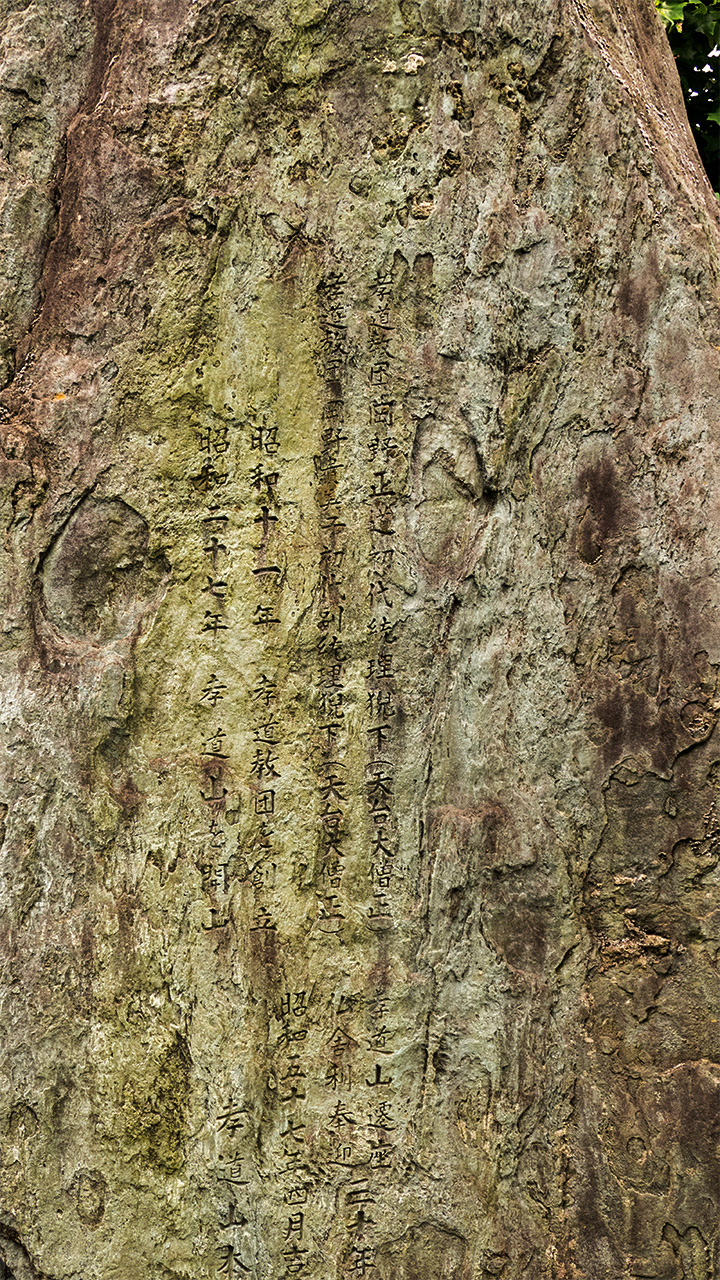 孝道教団岡野正道初代統理猊下（天台大僧正）
孝道教団岡野貴美子初代副統理猊下（天台大僧正）
昭和十一年 孝道教団を創立
昭和二十七年 孝道山を開山
孝道山遷座三十年
仏舎利奉迎
昭和五十七年四月吉
孝道山本